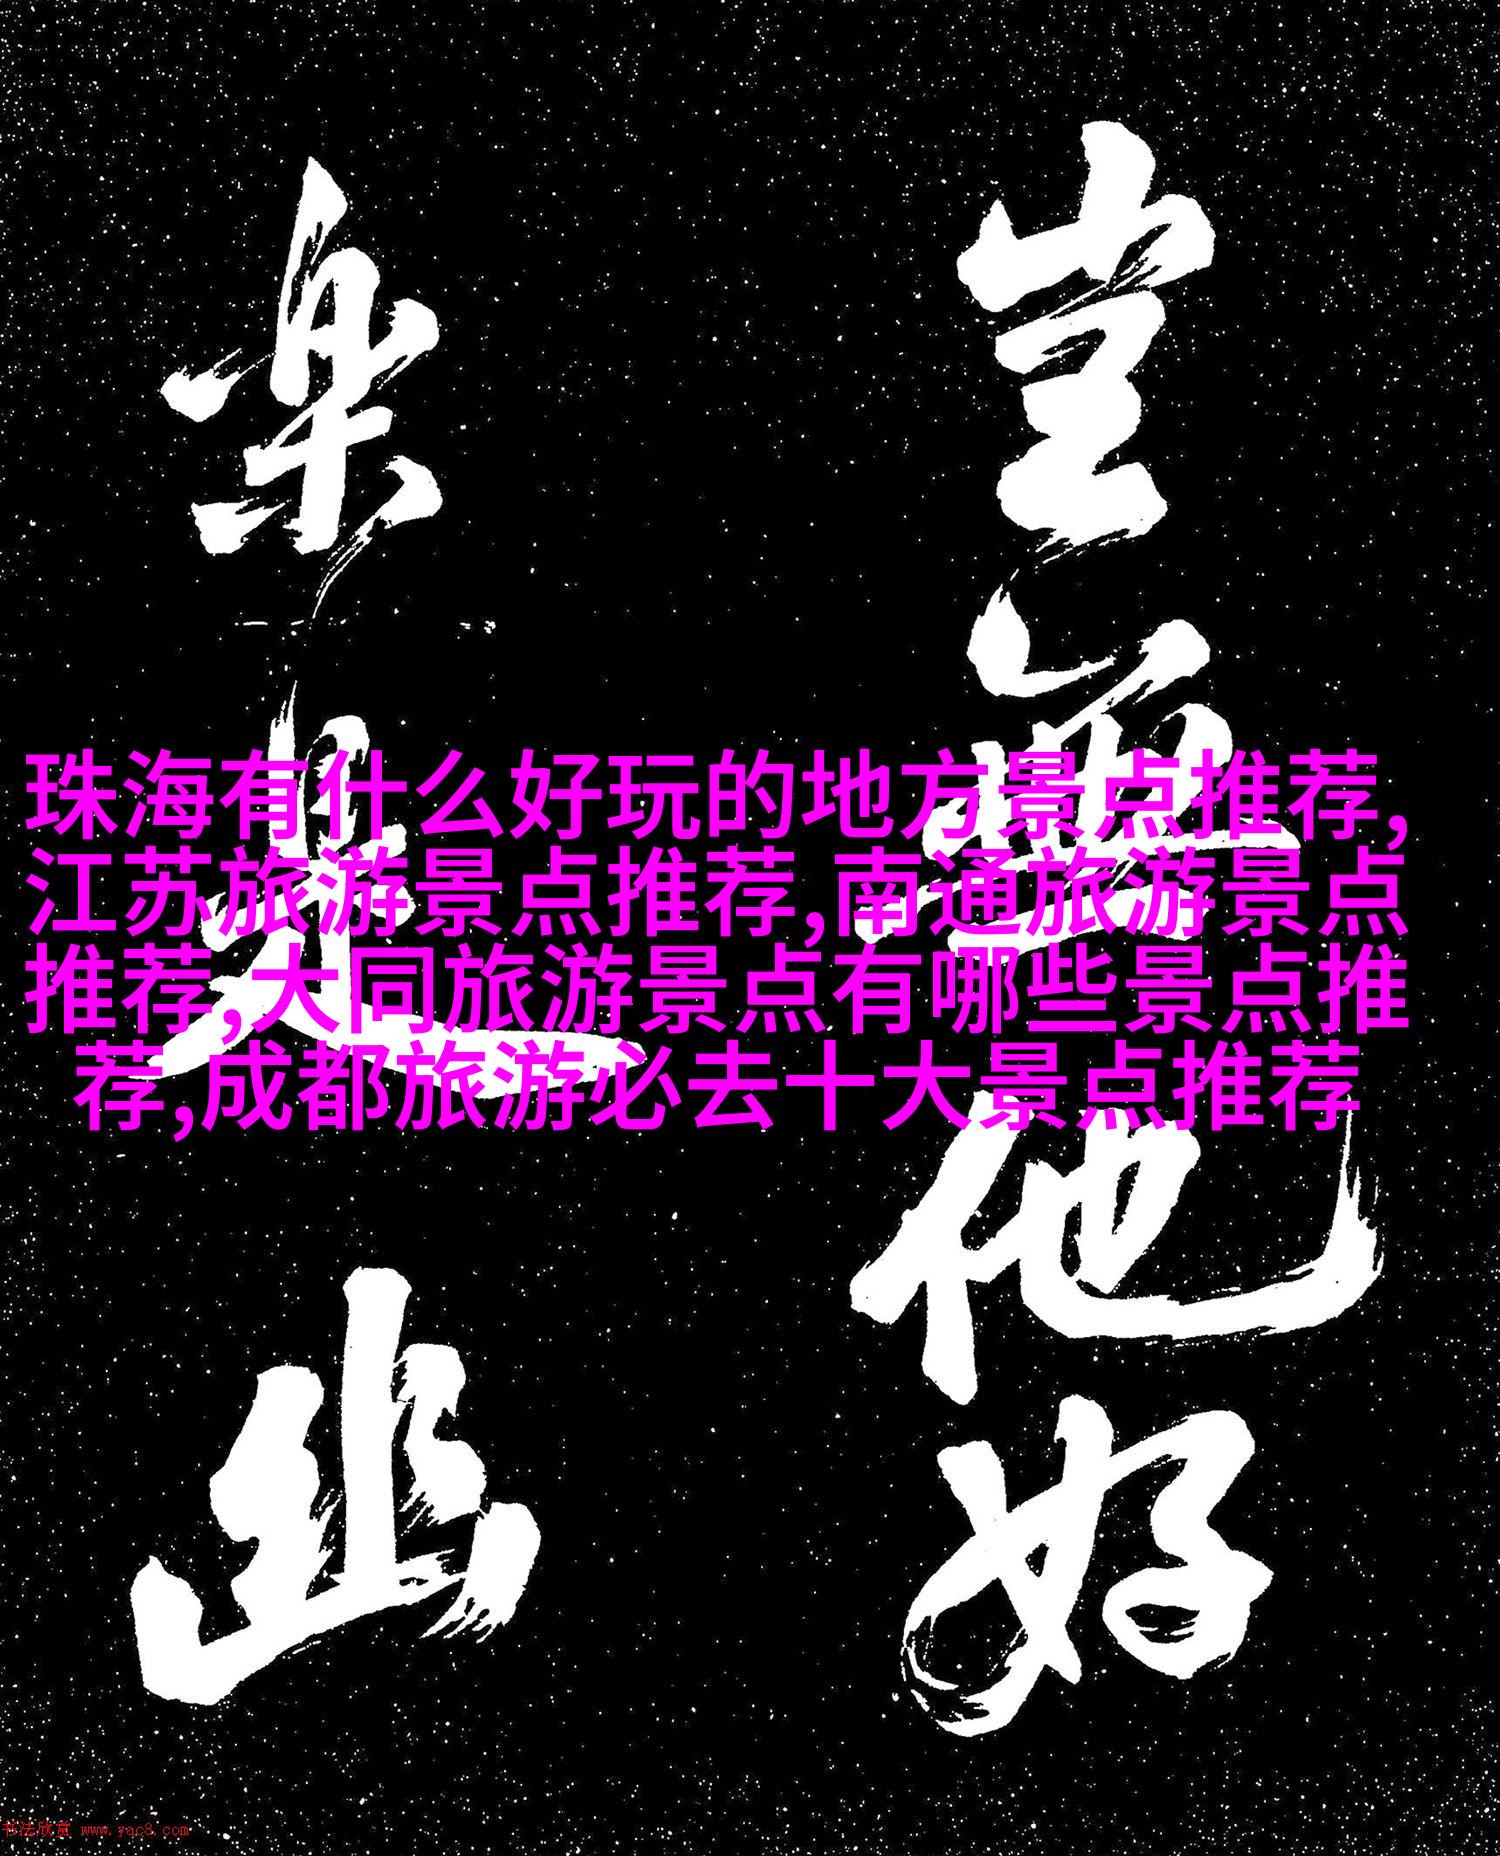 豈無他好
樂是幽
珠海有什么好玩的地方景点推荐,
江苏旅游景点推荐,南通旅游景点
推荐,大同旅游景点有哪些景点推
荐,成都旅游必去十大景点推荐
书法欣赏 www.yac8.com